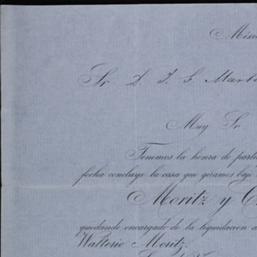 Sr. D. J. G. Marb
Muy Sr
Tenemos la honra de parti
fecha concluye la casa que girámos bajo
Moritz y C
quedando encargado de la liquidacion d
Walterio Moritz.